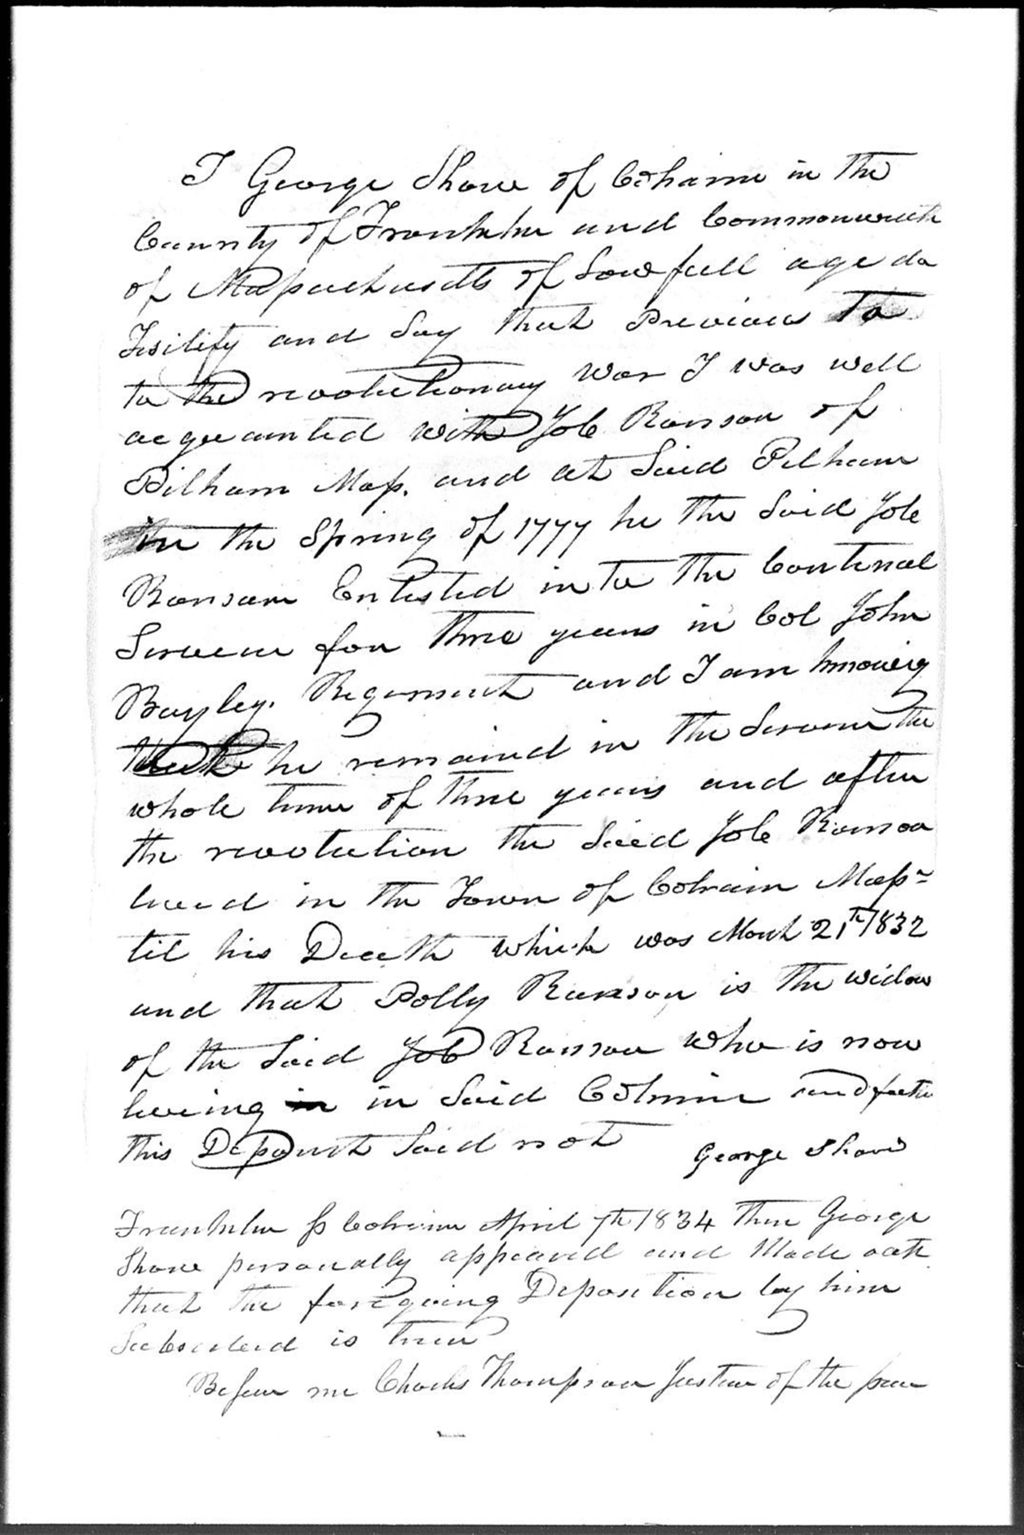 I George Shove of Colraine in the
County of Franklin and Commonwealth
of Massachusetts of Lawfull age do
Testify and Say that Previous to
to the revolutionary War I was well
acquainted with Job Ranson of
Pelham Mass. and at Said Pelham
in the Spring of 1777 he the Said Job
Ransom Enlisted in to the Contenal
Service for three years in Col John
Bayley. Regement and I am knowing
that he remained in the Servise the
whole time of three years and after
the revolution the Said Job Ranson
lived in the Town of Colrain Mass
til his Death which was March 21th 1832
and that Polly Ranson is the widow
of the Said Job Ranson who is now
living in in Said Colrain and further
this Deponent Said not George Shove
Franklin ss Colraine April 7th 1834 then George
Shove personally appeared and Made oath
that the foregoing Deposition by him
Subscribed is true
Before me Charles Thompson Justice of the peace